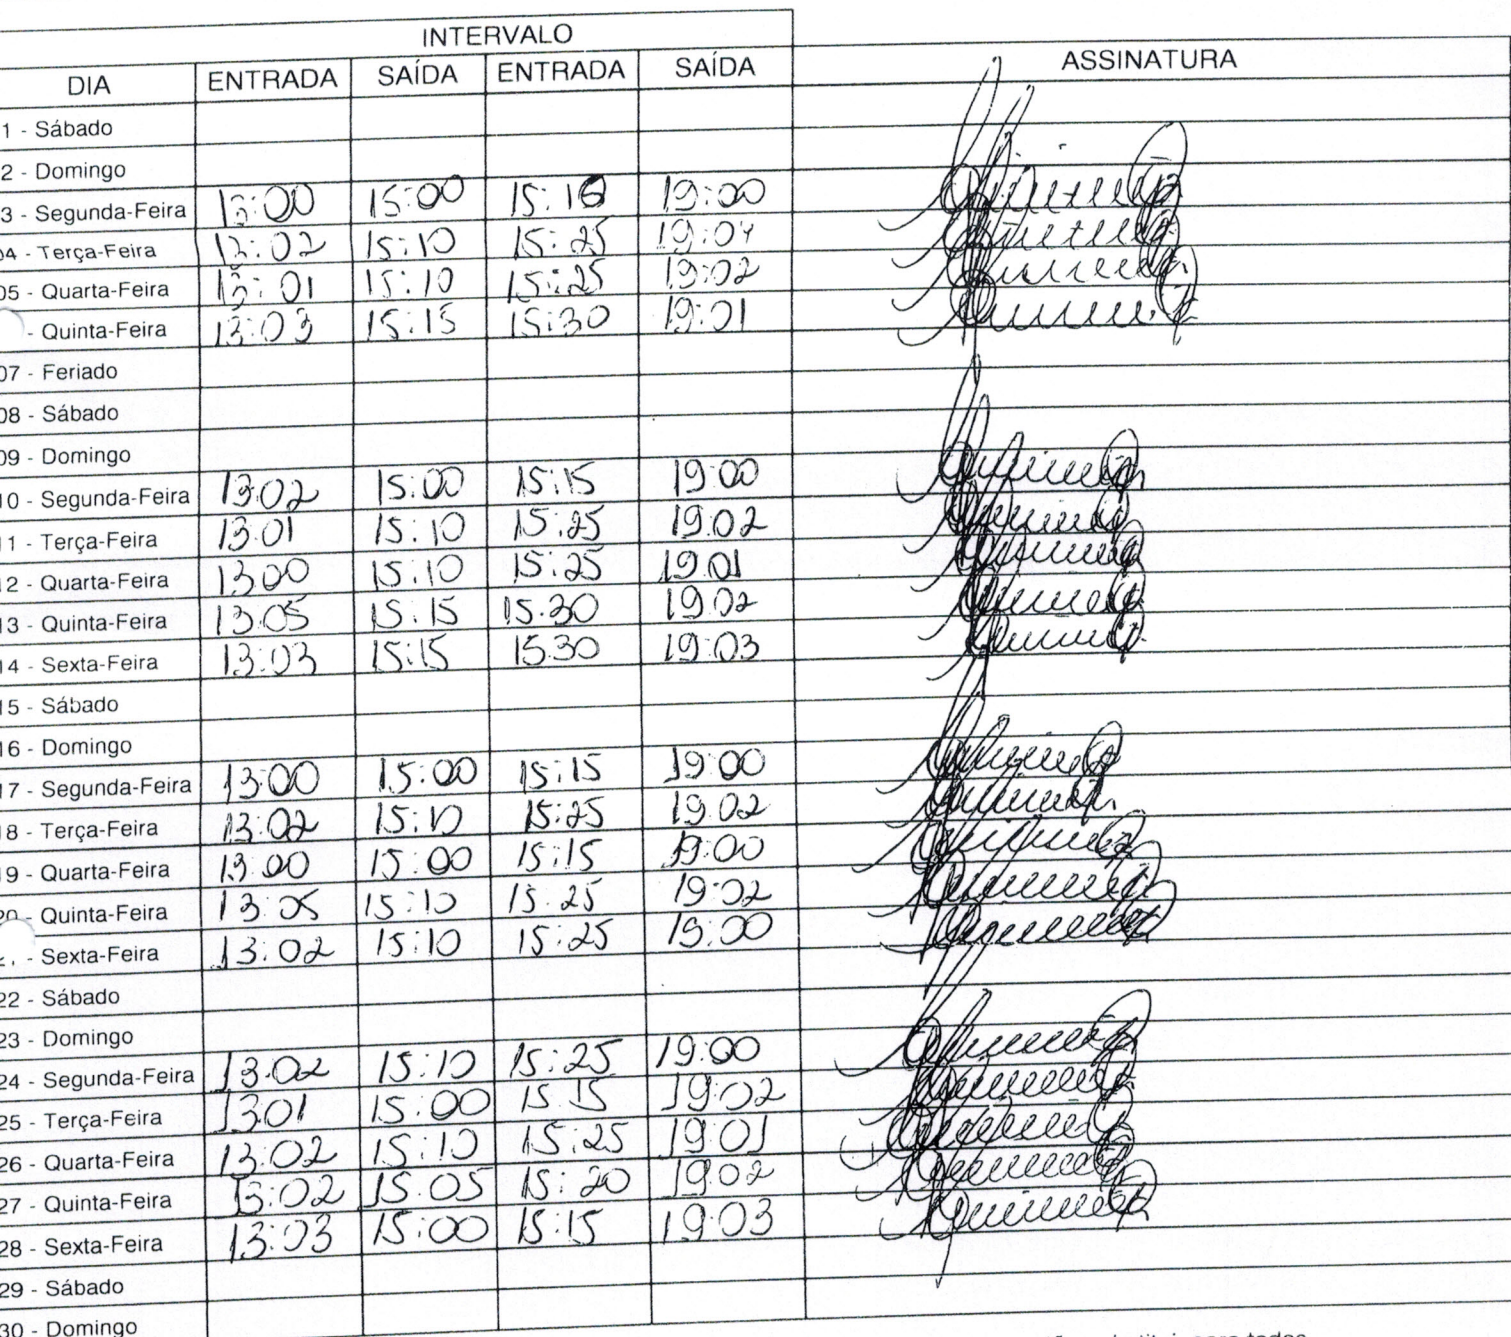 INTERVALO
DIA ENTRADA SAÍDA ENTRADA SAÍDA ASSINATURA
1 - Sábado
2 - Domingo
3 - Segunda-Feira 13:00 15:00 15:16 19:00
04 - Terça-Feira 13:02 15:10 15:25 19:04
05 - Quarta-Feira 13:01 15:10 15:25 19:02
- Quinta-Feira 13:03 15:15 15:30 19:01
07 - Feriado
08 - Sábado
09 - Domingo
10 - Segunda-Feira 13:02 15:00 15:15 19:00
11 - Terça-Feira 13:01 15:10 15:25 19:02
12 - Quarta-Feira 13:00 15:10 15:25 19:01
13 - Quinta-Feira 13:05 15:15 15:30 19:02
14 - Sexta-Feira 13:03 15:15 15:30 19:03
15 - Sábado
16 - Domingo
17 - Segunda-Feira 13:00 15:00 15:15 19:00
18 - Terça-Feira 13:02 15:10 15:25 19:02
19 - Quarta-Feira 13:00 15:00 15:15 19:00
20 - Quinta-Feira 13:05 15:10 15:25 19:02
- Sexta-Feira 13:02 15:10 15:25 19:00
22 - Sábado
23 - Domingo
24 - Segunda-Feira 13:02 15:10 15:25 19:00
25 - Terça-Feira 13:01 15:00 15:15 19:02
26 - Quarta-Feira 13:02 15:10 15:25 19:01
27 - Quinta-Feira 13:02 15:05 15:20 19:02
28 - Sexta-Feira 13:03 15:00 15:15 19:03
29 - Sábado
30 - Domingo